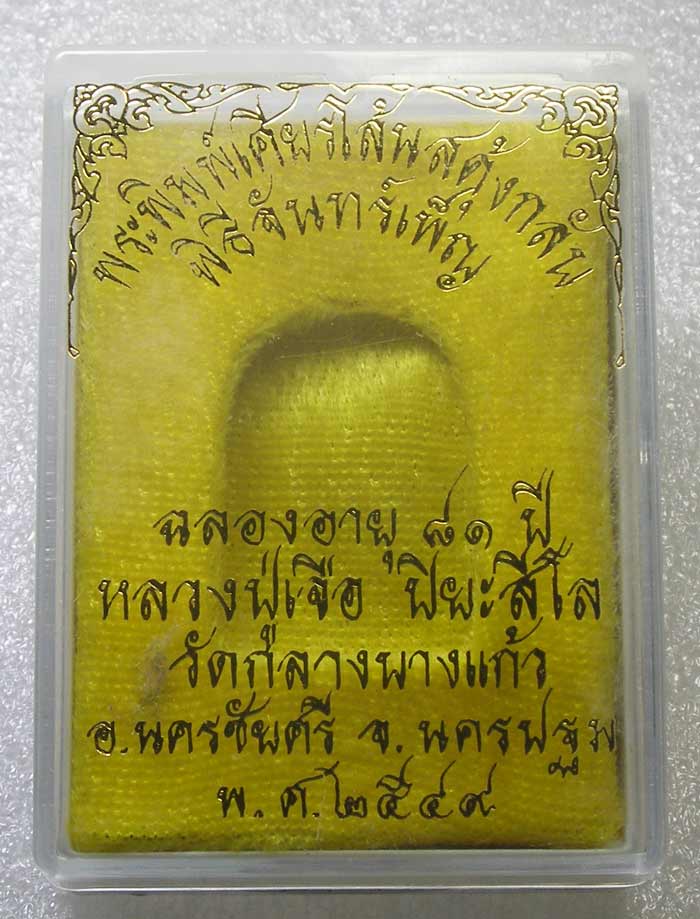 พระพิมพ์เศียรโล้นสะดุ้งกลับ
พิธีจันทร์เพ็ญ
ฉลองอายุ ๘๑ ปี
หลวงปู่เจือ ปิยะสีโล
วัดกลางบางแก้ว
อ.นครชัยศรี จ.นครปฐม
พ.ศ.๒๕๔๙